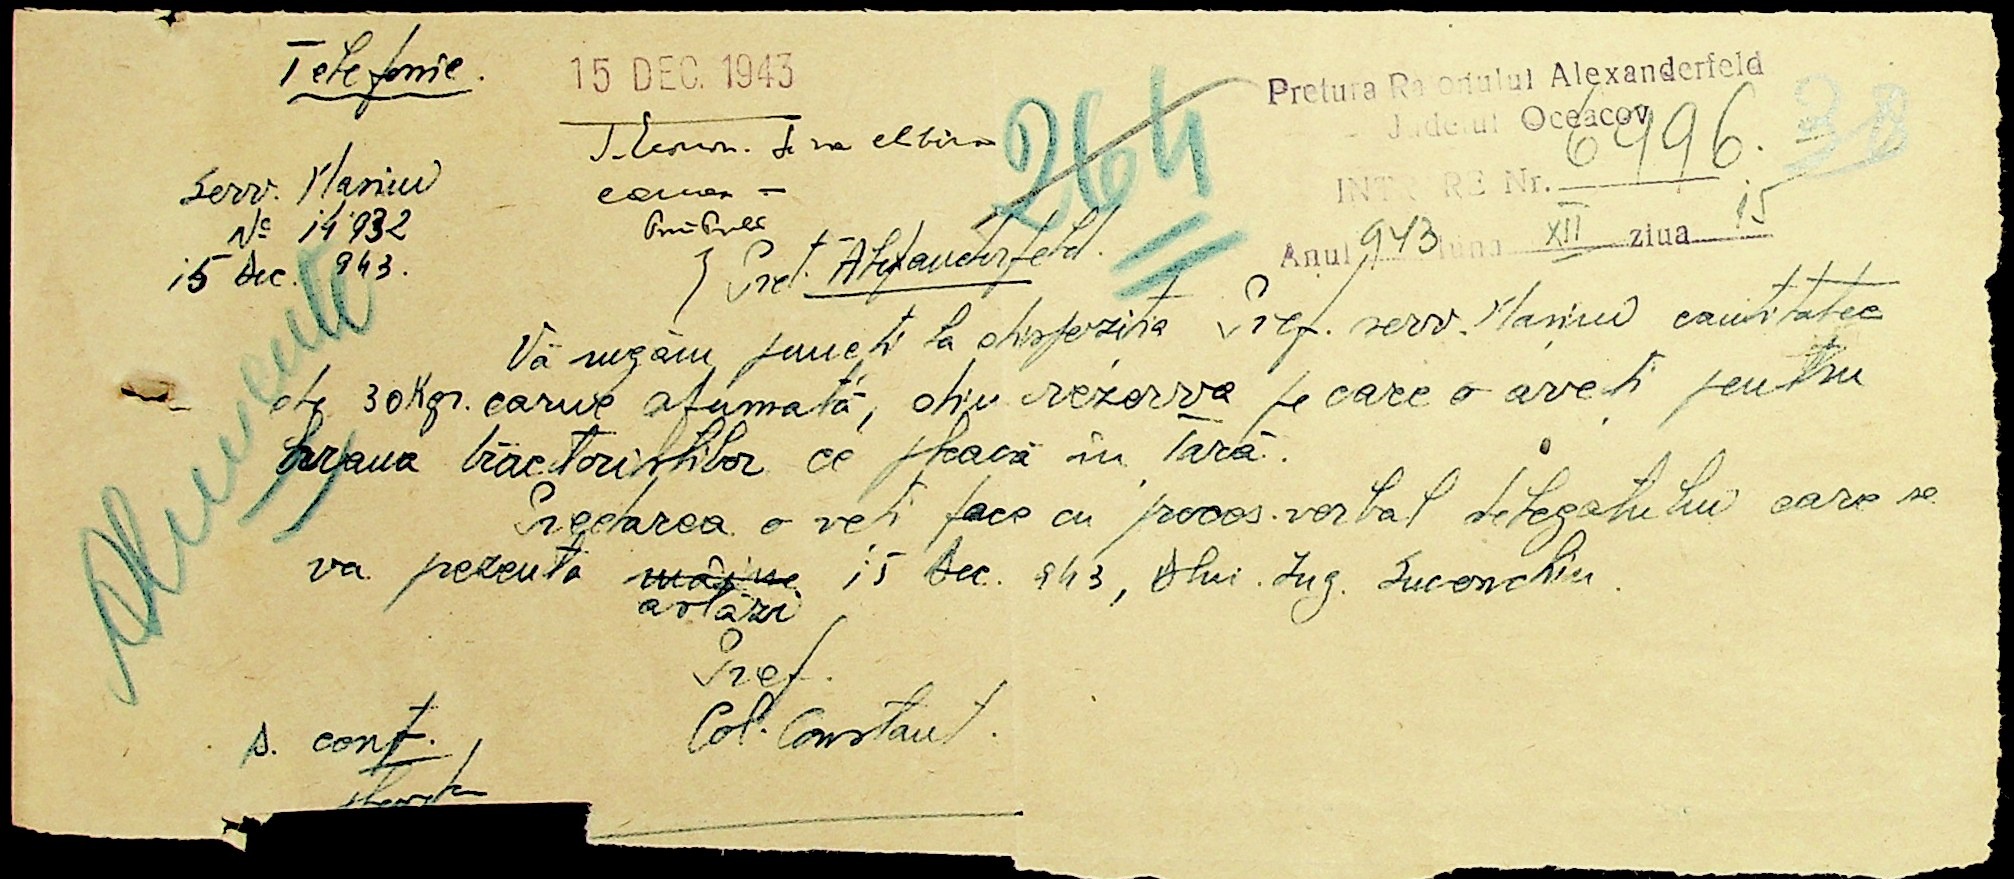 Telefonic.
15 DEC. 1943
Pretura Raionului Alexanderfeld
Judetul Oceacov
INTRARE Nr. 6996.
Anul 943 luna XII ziua 15
264
38
Se va elibera
carnea
Serv. Maniu
No 14932
15 Dec. 943.
Pret. Alexanderfeld.
Alimente
Vă rugăm puneti la dispozitia Pref. serv. Maniu cantitatea
de 30 Kgr. carne afumată, din rezerva pe care o aveti pentru
hrana tractoristilor ce pleacă in Tară.
Predarea o veti face cu proces-verbal delegatului care se
va prezenta mâine 15 Dec. 943, Dlui. Ing.
astăzi
Pref.
Col. Constant.
p. conf.